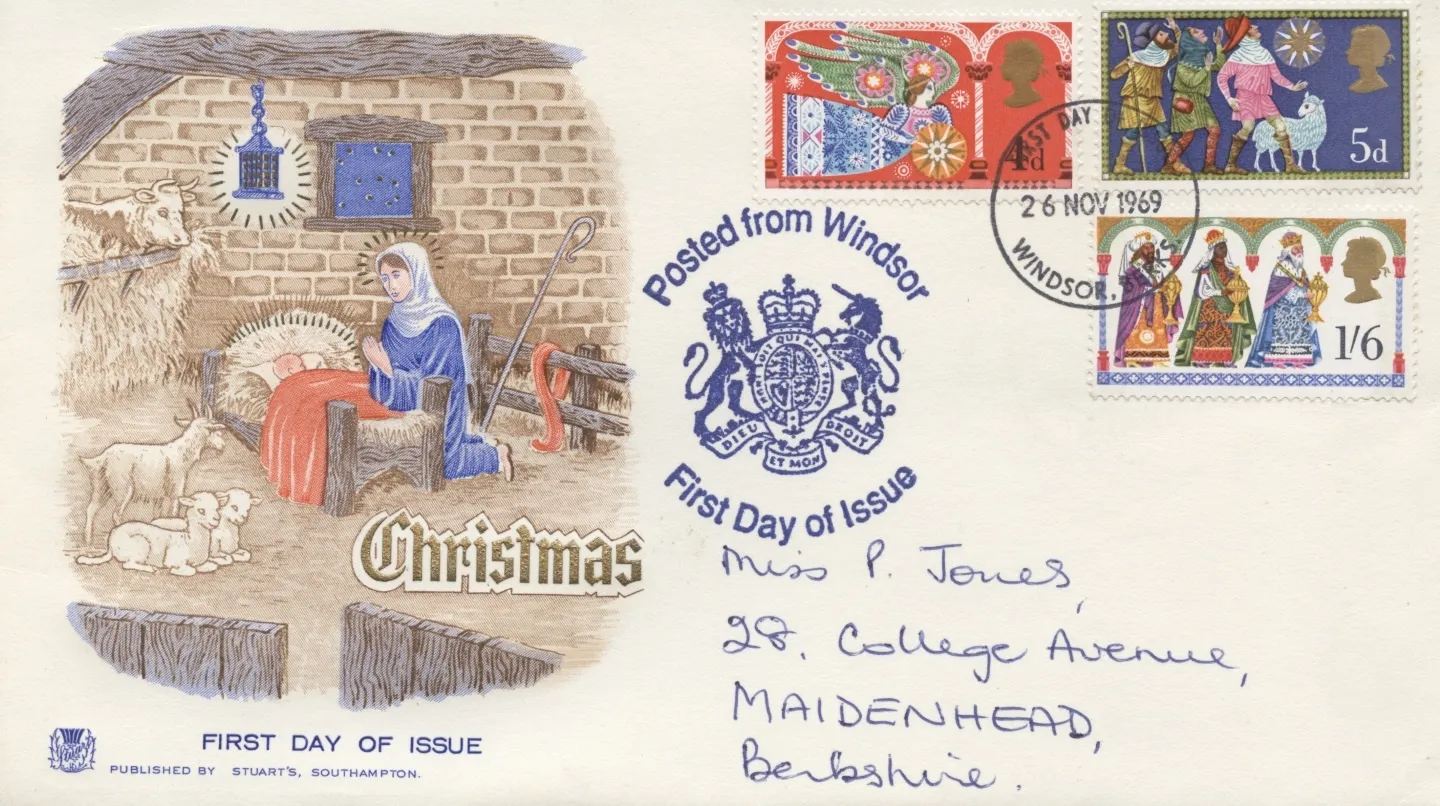 4d
5d
1'6
FIRST DAY
26 NOV 1969
WINDSOR, BERKS.
Posted from Windsor
HONI SOIT QUI MAL Y PENSE
DIEU ET MON DROIT
First Day of Issue
Christmas
Miss P. Jones,
28, College Avenue,
MAIDENHEAD,
Berkshire.
FIRST DAY OF ISSUE
PUBLISHED BY STUART'S, SOUTHAMPTON.